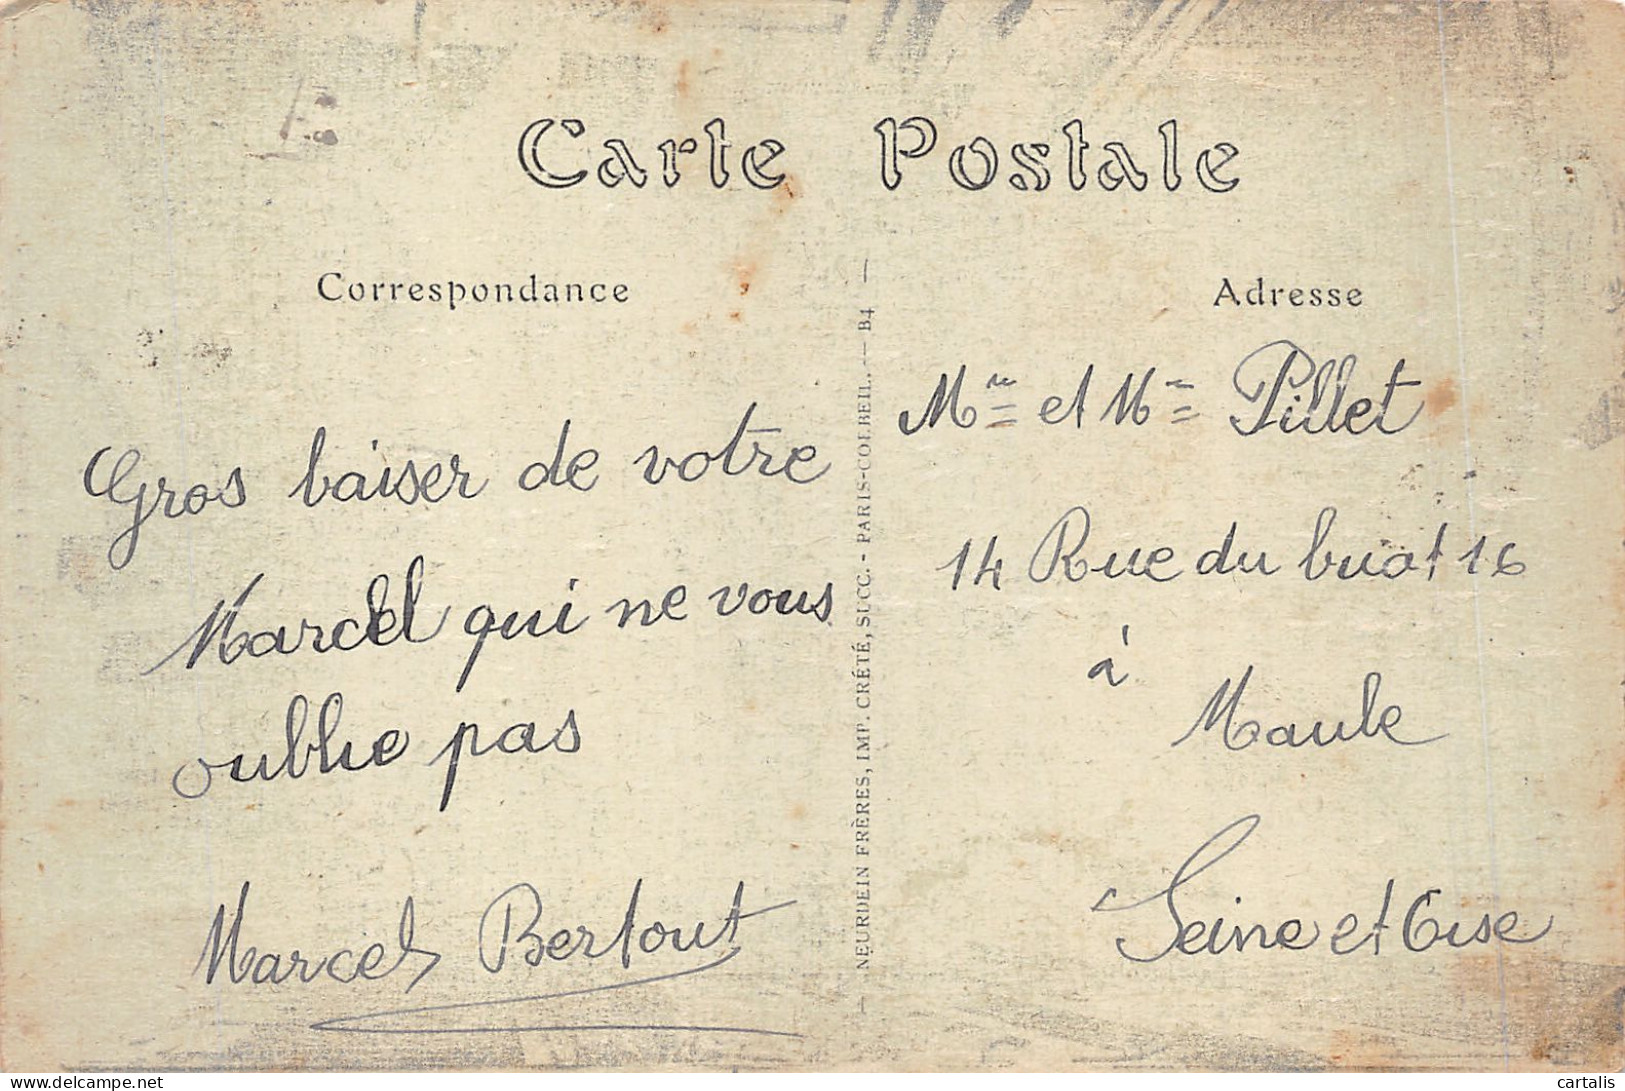 Carte Postale
Correspondance
Gros baiser de votre
Marcel qui ne vous
oublie pas
Marcel Bertout
NEURDEIN FRÈRES, IMP. CRÉTÉ, SUCC. - PARIS-CORBEIL. — B4
Adresse
et Pillet
14 Rue du buat 16
à
Maule
Seine et Oise
www.delcampe.net
cartalis